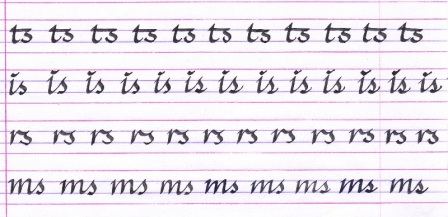 ts ts ts ts ts ts ts ts ts ts ts
is is is is is is is is is is is is is
rs rs rs rs rs rs rs rs rs rs rs rs
ms ms ms ms ms ms ms ms ms